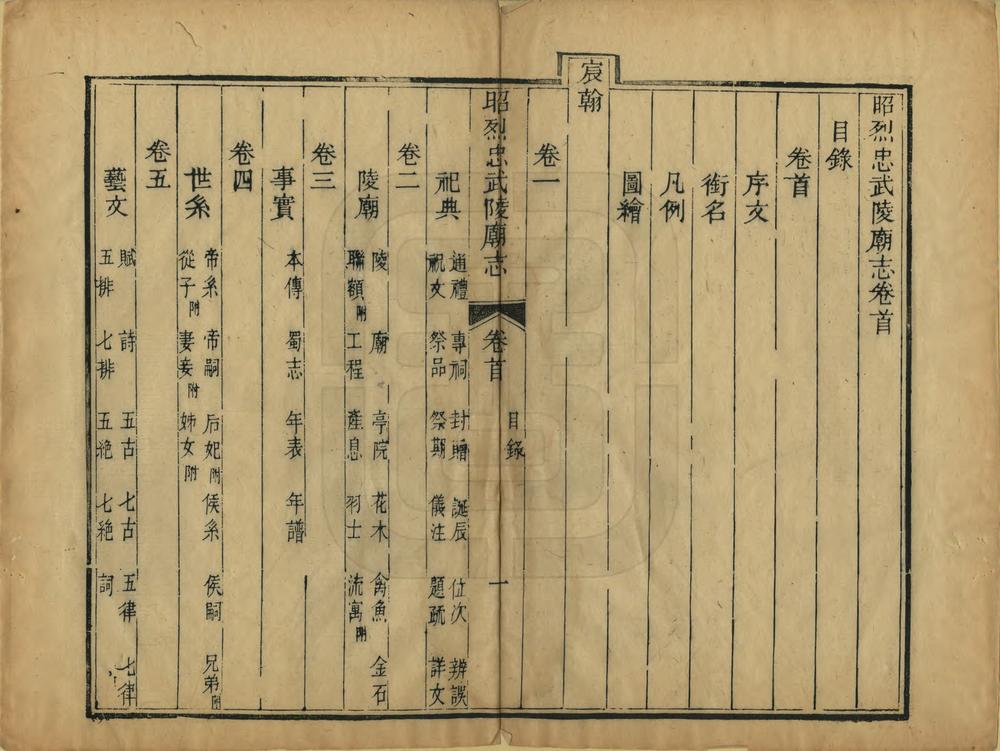 昭烈忠武陵廟志卷首
目錄
卷首
序文
銜名
凡例
圖繪
宸翰
卷一
昭烈忠武陵廟志 卷首 目錄 一
祀典 通禮 專祠 封贈 誕辰 位次 辨誤
祝文 祭品 祭期 儀注 題疏 詳文
卷二
陵廟 陵 廟 亭院 花木 禽魚 金石
聯額附 工程 產息 羽士 流寓附
卷三
事實 本傳 蜀志 年表 年譜
卷四
世系 帝系 帝嗣 后妃附 侯系 侯嗣 兄弟附
從子附 妻妾附 姊女附
卷五
藝文 賦 詩 五古 七古 五律 七律
五排 七排 五絕 七絕 詞